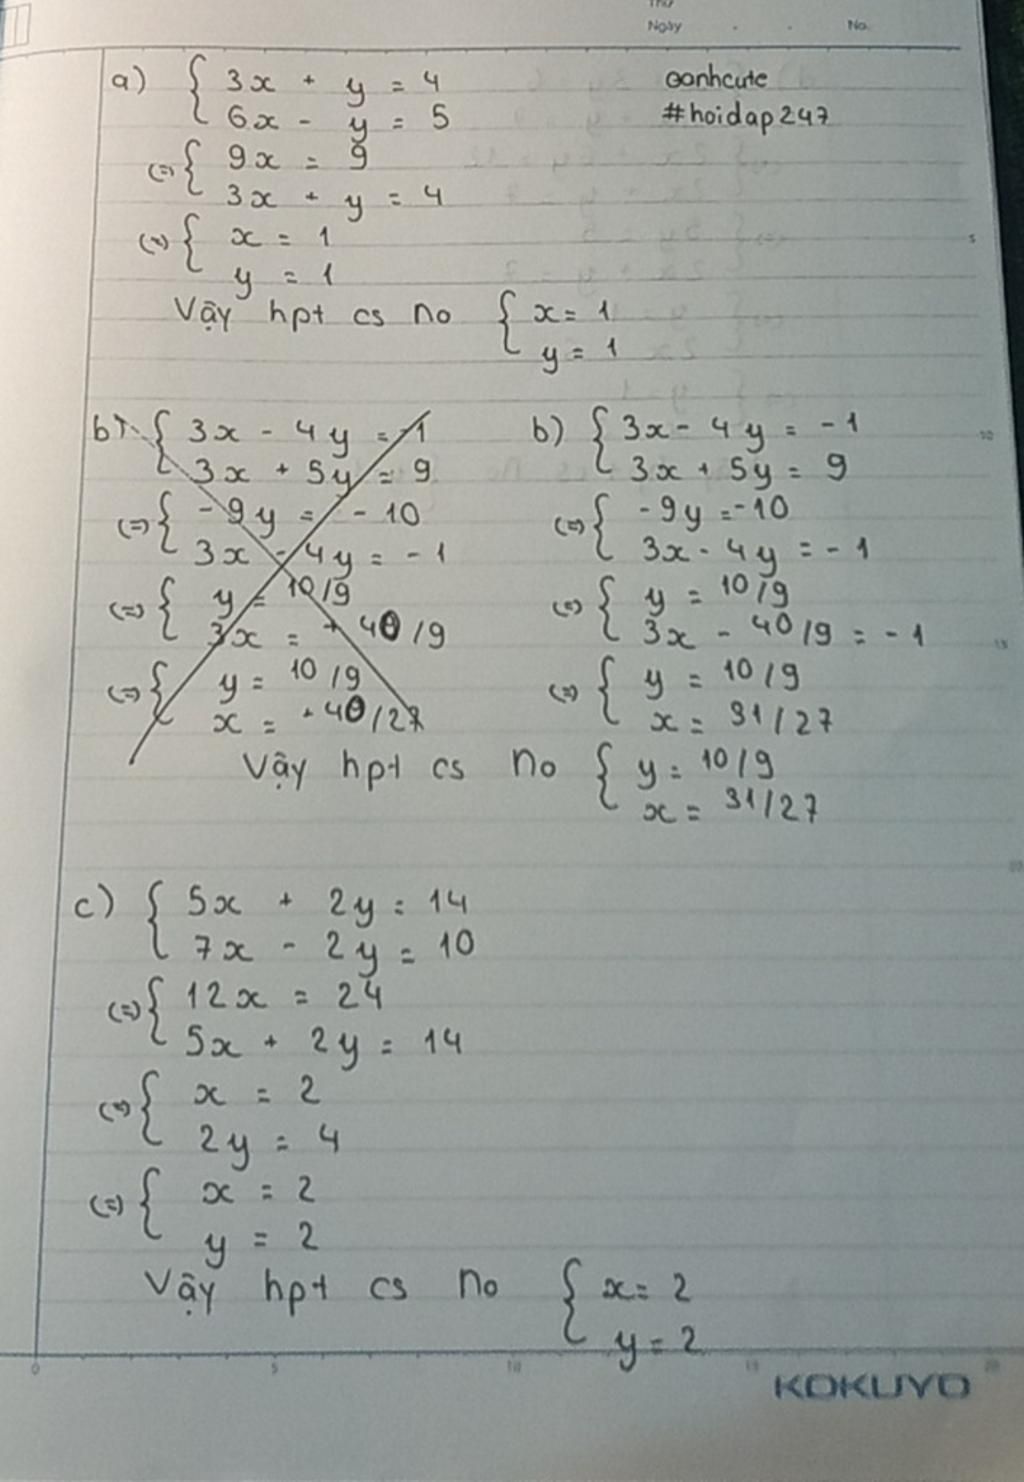 Thứ
Ngày . . No.
a) { 3x + y = 4
6x - y = 5
oanhcute
#hoidap247
(=) { 9x = 9
3x + y = 4
(=) { x = 1
y = 1
Vậy hpt cs no { x = 1
y = 1
b) { 3x - 4y = -1
3x + 5y = 9
(=) { -9y = -10
3x - 4y = -1
(=) { y = 10/9
3x = + 40/9
(=) { y = 10/9
x = 40/27
b) { 3x - 4y = -1
3x + 5y = 9
(=) { -9y = -10
3x - 4y = -1
(=) { y = 10/9
3x - 40/9 = -1
(=) { y = 10/9
x = 31/27
Vậy hpt cs no { y = 10/9
x = 31/27
c) { 5x + 2y = 14
7x - 2y = 10
(=) { 12x = 24
5x + 2y = 14
(=) { x = 2
2y = 4
(=) { x = 2
y = 2
Vậy hpt cs no { x = 2
y = 2
0 5 10 15 20
KOKUYO